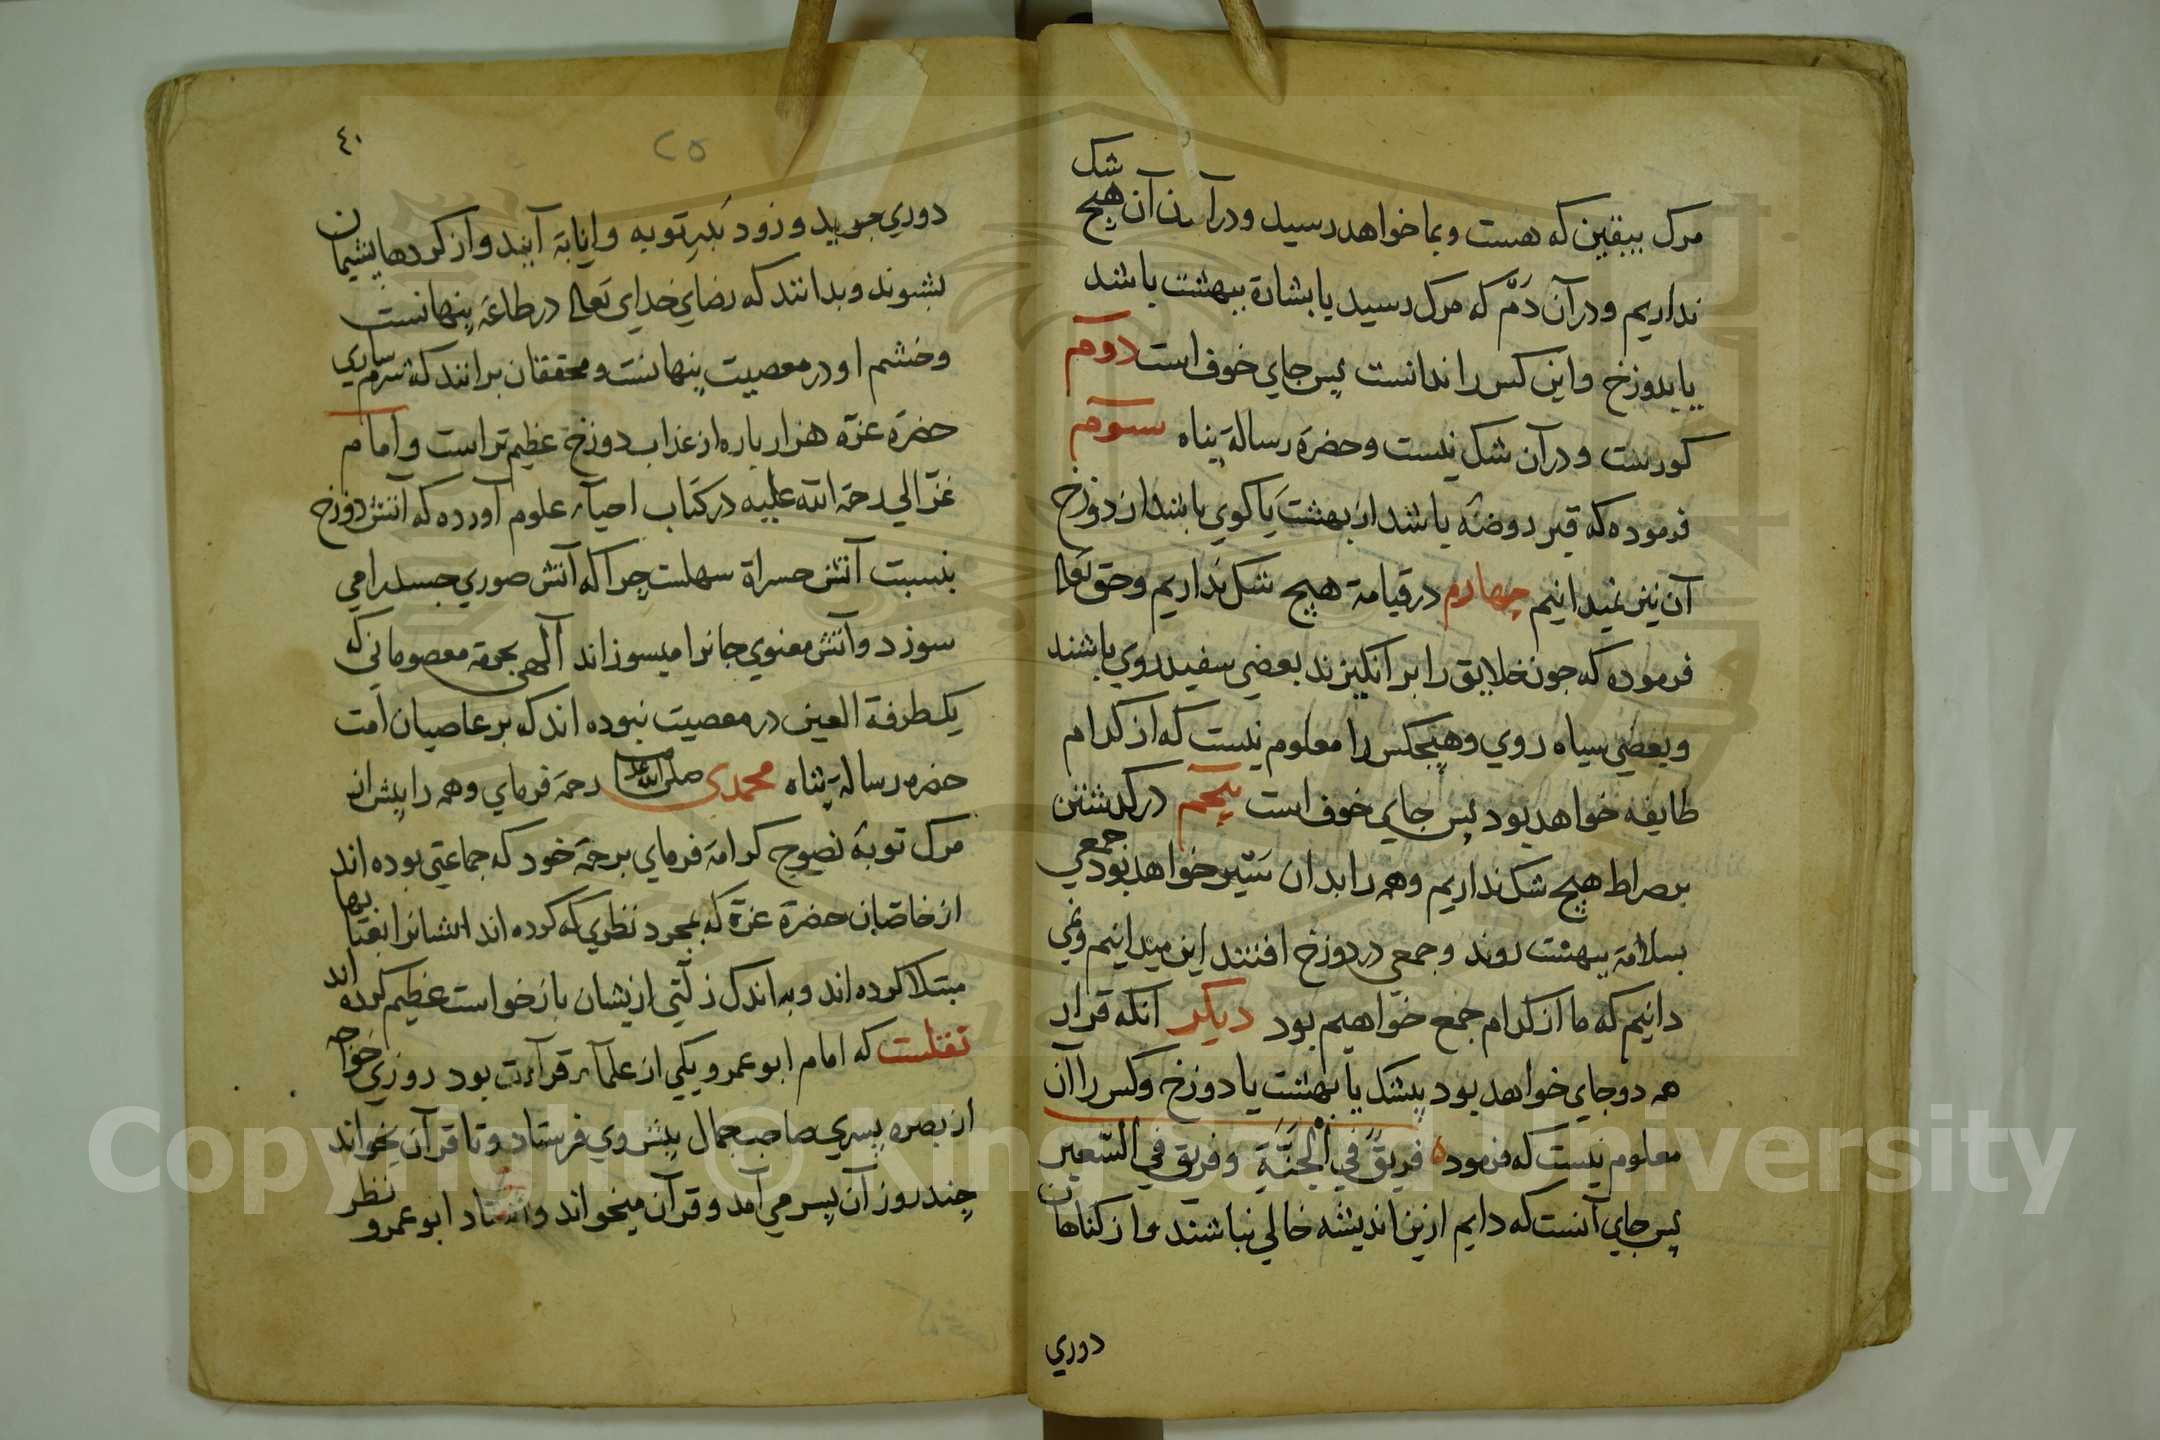 مرک بیقین که هست وبما خواهد رسید ودر آمدن آن هیچ شک
نداریم ودر آن دَمْ که مرک رسید یا بشارة ببهشت باشد
یا بدوزخ واین کس را ندانست پس جاي خوف است دوم
کورست ودر آن شک نیست وحضرة رسالة پناه سوم
فرموده که قبر روضهٔ باشد از بهشت یا کوي باشد از دوزخ
آن نیز نمیدانیم چهارم در قیامة هیچ شک نداریم وحق تعالی
فرموده که چون خلایق را بر انکیزند بعضي سفید روي باشند
وبعضي سیاه روي وهیچکس را معلوم نیست که از کدام
طایفه خواهد بود پس جاي خوف است پنجم در کدشتن
بر صراط هیچ شک نداریم وهمه را بدان سَیر خواهد بود جمعي
بسلامة ببهشت روند وجمعي در دوزخ افتند این میدانیم ونمي
دانیم که ما از کدام جمع خواهیم بود دیکر آنکه قرار
همه دو جاي خواهد بود بیشک یا بهشت یا دوزخ وکس را آن
معلوم نیست که فرموده فَرِيقٌ فِي الْجَنَّةِ وفريق في السَّعير
پس جاي آنست که دایم ازین اندیشه خالي نباشند واز کناهان
دوري
٤٠
٢٥
دوري جویید وزود بَدَرِ توبه وانابة آیند واز کردها پشیمان
بشوند وبدانند که رضاي خداي تعالی در طاعة پنهانست
وخشم او در معصیت پنهانست ومحققان برانند که شرم ساري
حضرة عزة هزار باره از عذاب دوزخ عظیم تر است وامام
غزّالي رحمة الله علیه در کتاب احیآء علوم آورده که آتش دوزخ
بنسبت آتش حسراة سهلست چرا که آتش صوري جسد را مي
سوزد وآتش معنوي جانرا میسوزاند آلهي بحرمة معصوماني که
یک طرفة العین در معصیت نبوده اند که بر عاصیان امت
حضرة رسالة پناه محمدي صلی الله علیه رحمة فرماي وهمه را پیش از
مرک توبهٔ نصوح کرامة فرماي برحمة خود که جماعتي بوده اند
از خاصّان حضرة عزة که بمجرد نظري که کرده اند ایشانرا بعتابها
مبتلا کرده اند وبه اندک زلّتي ازیشان بازخواست عظیم کرده اند
نقلست که امام ابو عمرو یکي از علمآء قرآءت بود روزي خواجه
از بصره پسري صاحب جمال پیش وي فرستاد وتا قرآن بخواند
چند روز آن پسر مي آمد وقرآن میخواند واستاد ابو عمرو نظر
Copyright © King Saud University